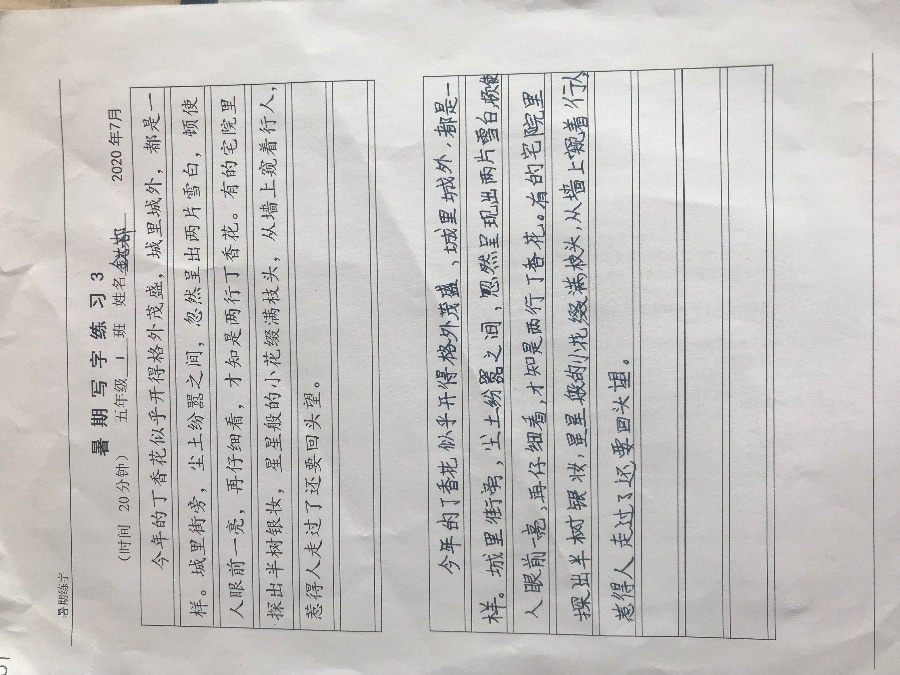 暑期练字
暑期写字练习3
（时间 20分钟） 五年级 1 班 姓名 2020年7月
今年的丁香花似乎开得格外茂盛，城里城外，都是一
样。城里街旁，尘土纷嚣之间，忽然呈出两片雪白，顿使
人眼前一亮，再仔细看，才知是两行丁香花。有的宅院里
探出半树银妆，星星般的小花缀满枝头，从墙上窥着行人，
惹得人走过了还要回头望。
今年的丁香花似乎开得格外茂盛，城里城外，都是一
样。城里街旁，尘土纷嚣之间，忽然呈现出两片雪白顿使
人眼前一亮，再仔细看，才知是两行丁香花。有的宅院里
探出半树银妆，星星般的小花缀满枝头，从墙上窥着行人
惹得人走过了还要回头望。